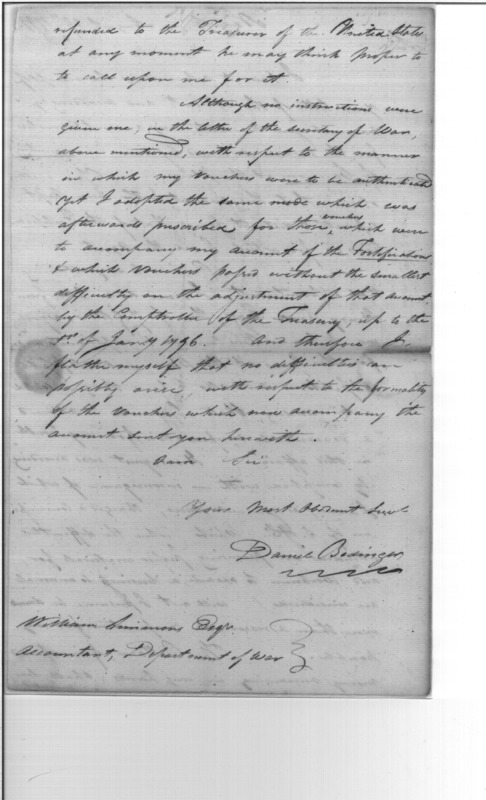 refunded to the Treasurer of the United States
at any moment he may think proper to
to call upon me for it.
Although no instructions were
given me, in the letter of the secretary of War,
above mentioned, with respect to the manner
in which my vouchers were to be authenticated
yet I adopted the same mode which was
afterwards prescribed for those vouchers, which were
to accompany my account of the Fortifications
& which vouchers passed without the smallest
difficulty on the adjustment of that account
by the Comptroller of the Treasury, up to the
1st. of Jany 1796. And therefore I
flatter myself that no difficulties can
possibly arise, with respect to the formality
of the vouchers which now accompany the
account sent you herewith.
Sir
Your Most Obedient Servt
Daniel Bedinger
William Simmons Esqr.
Accountant, Department of War